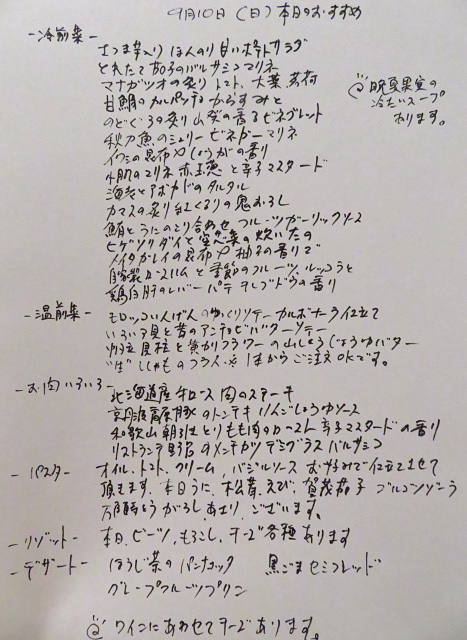 9月10日(日)本日のおすすめ
-冷前菜-
さつま芋入り ほんのり甘いポテトサラダ
とれたて茄子のバルサミコマリネ
マナガツオの炙り トマト、大葉、茗荷
甘鯛のカルパッチョ からすみと
のどぐろの炙り 山葵の香るビネグレット
秋刀魚のシェリービネガーマリネ
イワシの昆布〆 しょうがの香り
のマリネ 赤玉葱と辛子マスタード
海老とアボカドのタルタル
カマスの炙り 紅くるりの鬼おろし
鮪とうにのとり合わせ フルーツガーリックソース
ヒゲソリダイと空心菜の炊いたの
メイタガレイの昆布〆 柚子の香りで
自家製ロースハムと季節のフルーツ、ルッコラと
鶏白肝のレバーパテ 干しブドウの香り
@ 晩夏果実の
冷たいスープ
あります。
-温前菜-
モロッコいんげんのゆっくりソテー カルボナーラ仕立て
いろいろ貝と茸のアンチョビバターソテー
帆立貝柱と焦がりフラワーの山しょうじょうゆバター
"生"ししゃものフライ ※1本からご注文OKです。
-お肉いろいろ-
北海道産 牛ロース肉のステーキ
京丹波高原豚のトンテキ りんごしょうゆソース
和歌山 朝引きとりもも肉のロースト 辛子マスタードの香り
リストランテ野呂のメンチカツ デミグラス バルサミコ
-パスタ- オイル、トマト、クリーム、バジルソース お好みで仕立てさせて
頂きます。本日うに、松茸、えび、賀茂茄子 ゴルゴンゾーラ
万願寺とうがらし、あさり、ございます。
-リゾット- 本日、ビーツ、もろこし、チーズ各種あります
-デザート- ほうじ茶のパンナコッタ 黒ごまセミフレッド
グレープフルーツプリン
@ ワインにあわせてチーズあります。